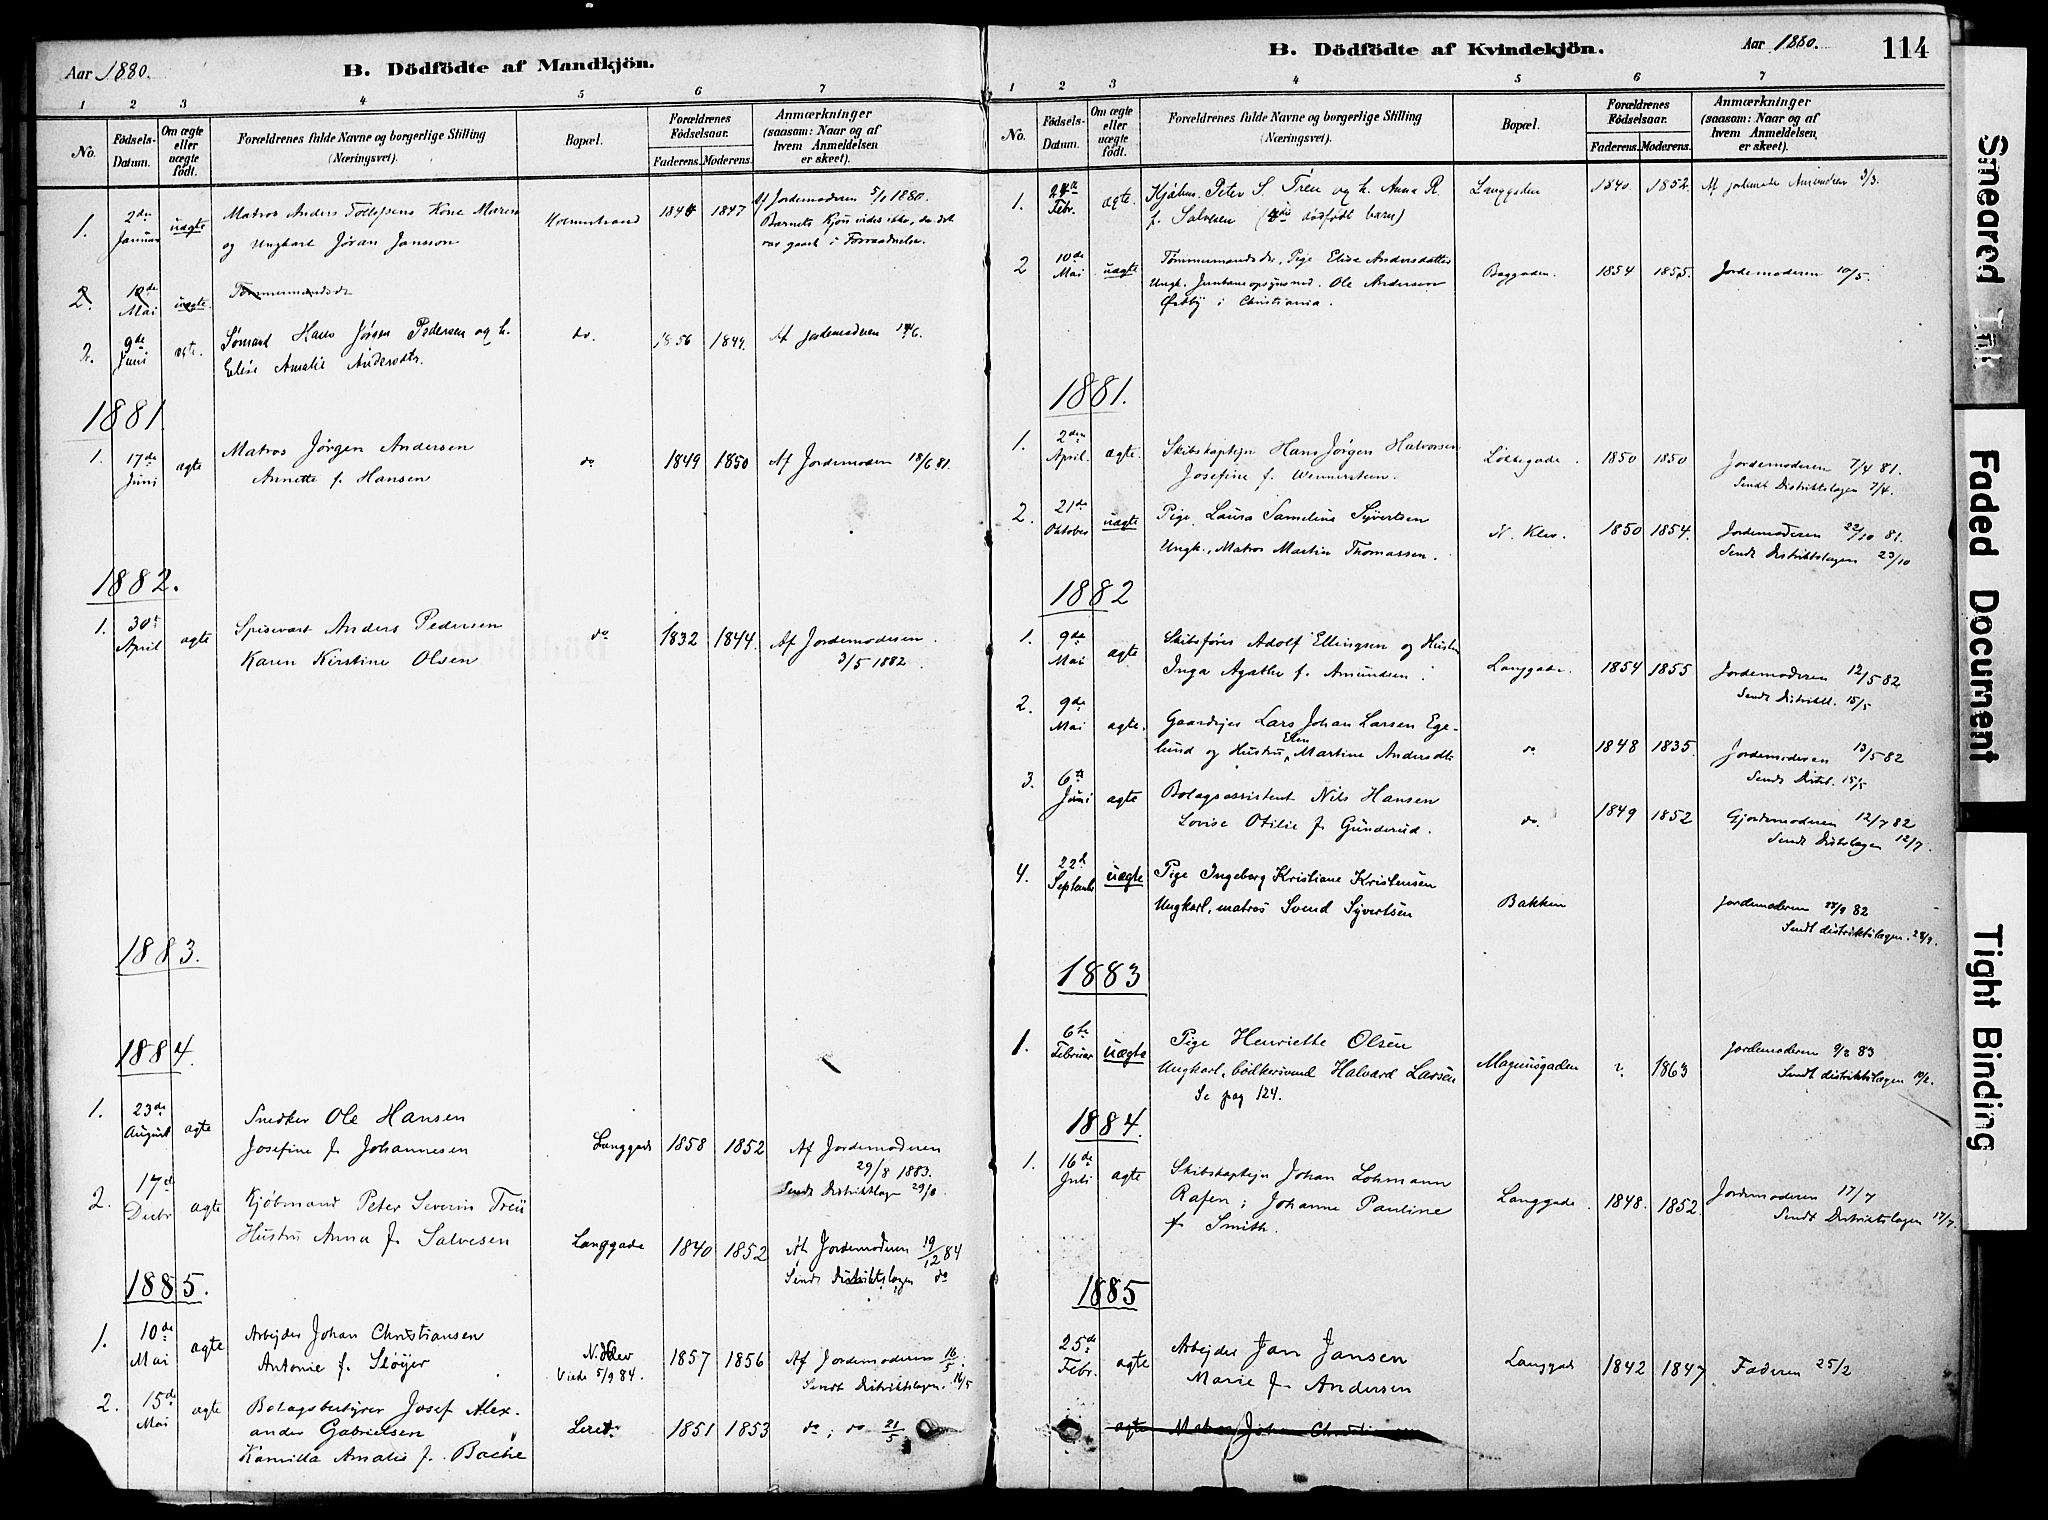 Aar 1880.
B. Dödfödte af Mandkjön.
1 2 3 4 5 6 7
No.
Födsels-Datum.
Om ægte eller uægte födt.
Forældrenes fulde Navne og borgerlige Stilling
(Næringsvei).
Bopæl.
Forældrenes Fødselsaar.
Faderens. Moderens.
Anmærkninger
(saasom: Naar og af
hvem Anmeldelsen
er skeet).
1. 2den Januar uægte Matros Anders Kone Maren Holmestrand 1844 1847 Af Jordemoderen 5/1 1880.
og Ungkarl Jøran Jansson
Barnets Kjøn vides ikke, da det
var gaaet i Forraadnelse.
2. 10de Mai uægte Tømmermandsdr
2. 9de Juni ægte. Sømand Hans Jørgen Pedersen og h. do. 1856 1849. Af jordemoderen
Elise Amalie Andersdtr.
1881.
1. 17de Juni ægte Matros Jørgen Andersen do 1849 1850 Af Jordemoderen 18/6 81.
Annette f. Hansen
1882.
1. 30te April ægte Spisevært Anders Pedersen do 1832 1844. Af Jordemoderen.
Karen Kirstine Olsen 3/5 1882.
1883.
1884.
1. 23de August ægte Snedker Ole Hansen
Josefine f. Johannesen Langgade 1858 1852 Af Jordemoderen
29/8 1883.
Sendt Distriktslægen 29/8
2. 17de Decbr ægte Kjøbmand Peter Severin Treu
Hustru Anna f. Salvesen Langgade 1840 1852 Af Jordemoderen 19/12 84
Sendt Distriktslægen do
1885.
1. 10de Mai ægte Arbejder Johan Christiansen
Antonie f. Sløijer N. Klev 1857 1856 Af Jordemoderen 16/5.
Viede 5/9 84. Sendt Distriktslægen. 16/5
2. 15de Mai ægte Bolagsbestyrer Josef Alex-
ander Gabrielsen Leret. 1851 1853 do; do 21/5
Kamilla Amalie f. Bache
B. Dödfödte af Kvindekjön.
Aar 1880.
114
1 2 3 4 5 6 7
No.
Födsels-Datum.
Om ægte eller uægte födt.
Forældrenes fulde Navne og borgerlige Stilling
(Næringsvei).
Bopæl.
Forældrenes Fødselsaar.
Faderens. Moderens.
Anmærkninger
(saasom: Naar og af
hvem Anmeldelsen
er skeet).
1. 24de Febr. ægte. Kjøbm. Peter S Treu og h. Anna R Langgaden 1840 1852. Af jordemoder 3/3.
f. Salvesen (4de dødfødt barn)
2 10de Mai uægte Tømmermandsdr, Pige Elise Andersdatter Baggaden. 1854 1855. Jordemoderen 10/5.
Ungk. Jernbaneopsynsmd. Ole Andersen
Østby i Christiania.
1881.
1. 2den April. ægte. Skibskaptejn Hans Jørgen Halvorsen Løkkegade. 1850 1850 Jordemoderen 7/4 81.
Josefine f. Wennersteen. Sendt Distriktslægen 7/4.
2. 21de Oktober uægte Pige Laura Sameline Syvertsen N. Klev. 1850 1854. Jordemoderen 22/10 81.
Ungk., Matros Martin Thomassen. Sendt Distriktslægen 23/10
1882
1. 9de Mai ægte Skibsfører Adolf Ellingsen og Hustru
Inga Agathe f. Amundsen. Langgade. 1854 1855 Jordemoderen 12/5 82
Sendt Distriktl. 15/5
2. 9de Mai ægte. Gaardejer Lars Johan Larsen Ege-
lund og Hustru Elen Martine Andersdtr do 1848 1835. Jordemoderen 13/5 82
Sendt Distl. 15/5
3. 6te Juni ægte Bolagsassistent Nils Hansen
Lovise Otilie f. Gunderud. do. 1849 1852 Gjordemoderen 12/7 82
Sendt Distslægen 12/7.
4. 22de Septembr uægte Pige Ingeborg Kristiane Kristensen
Ungkarl, matros Svend Syvertsen Bakken Jordemoderen 82
Sendt distriktslægen. 28/9.
1883
1. 6te Februar uægte Pige Henriette Olsen
Ungkarl, bødkersvend Halvard Larsen Magnusgaden ?. 1863 Jordemoderen 9/2 83
Se pag 124. Sendt distriktslægen 10/2.
1884.
1. 16de Juli ægte Skibskaptejn Johan Lohmann
Rafen; Johanne Pauline Langgade. 1848. 1852. Jordemoderen 17/7
f. Smith. Sendt Distriktslægen 17/7.
1885
25de Febr. ægte Arbejder Jan Jansen Langgade 1842 1847 Faderen 25/2
Marie f. Andersen
ægte
Smeared Ink
Faded Document
Tight Binding